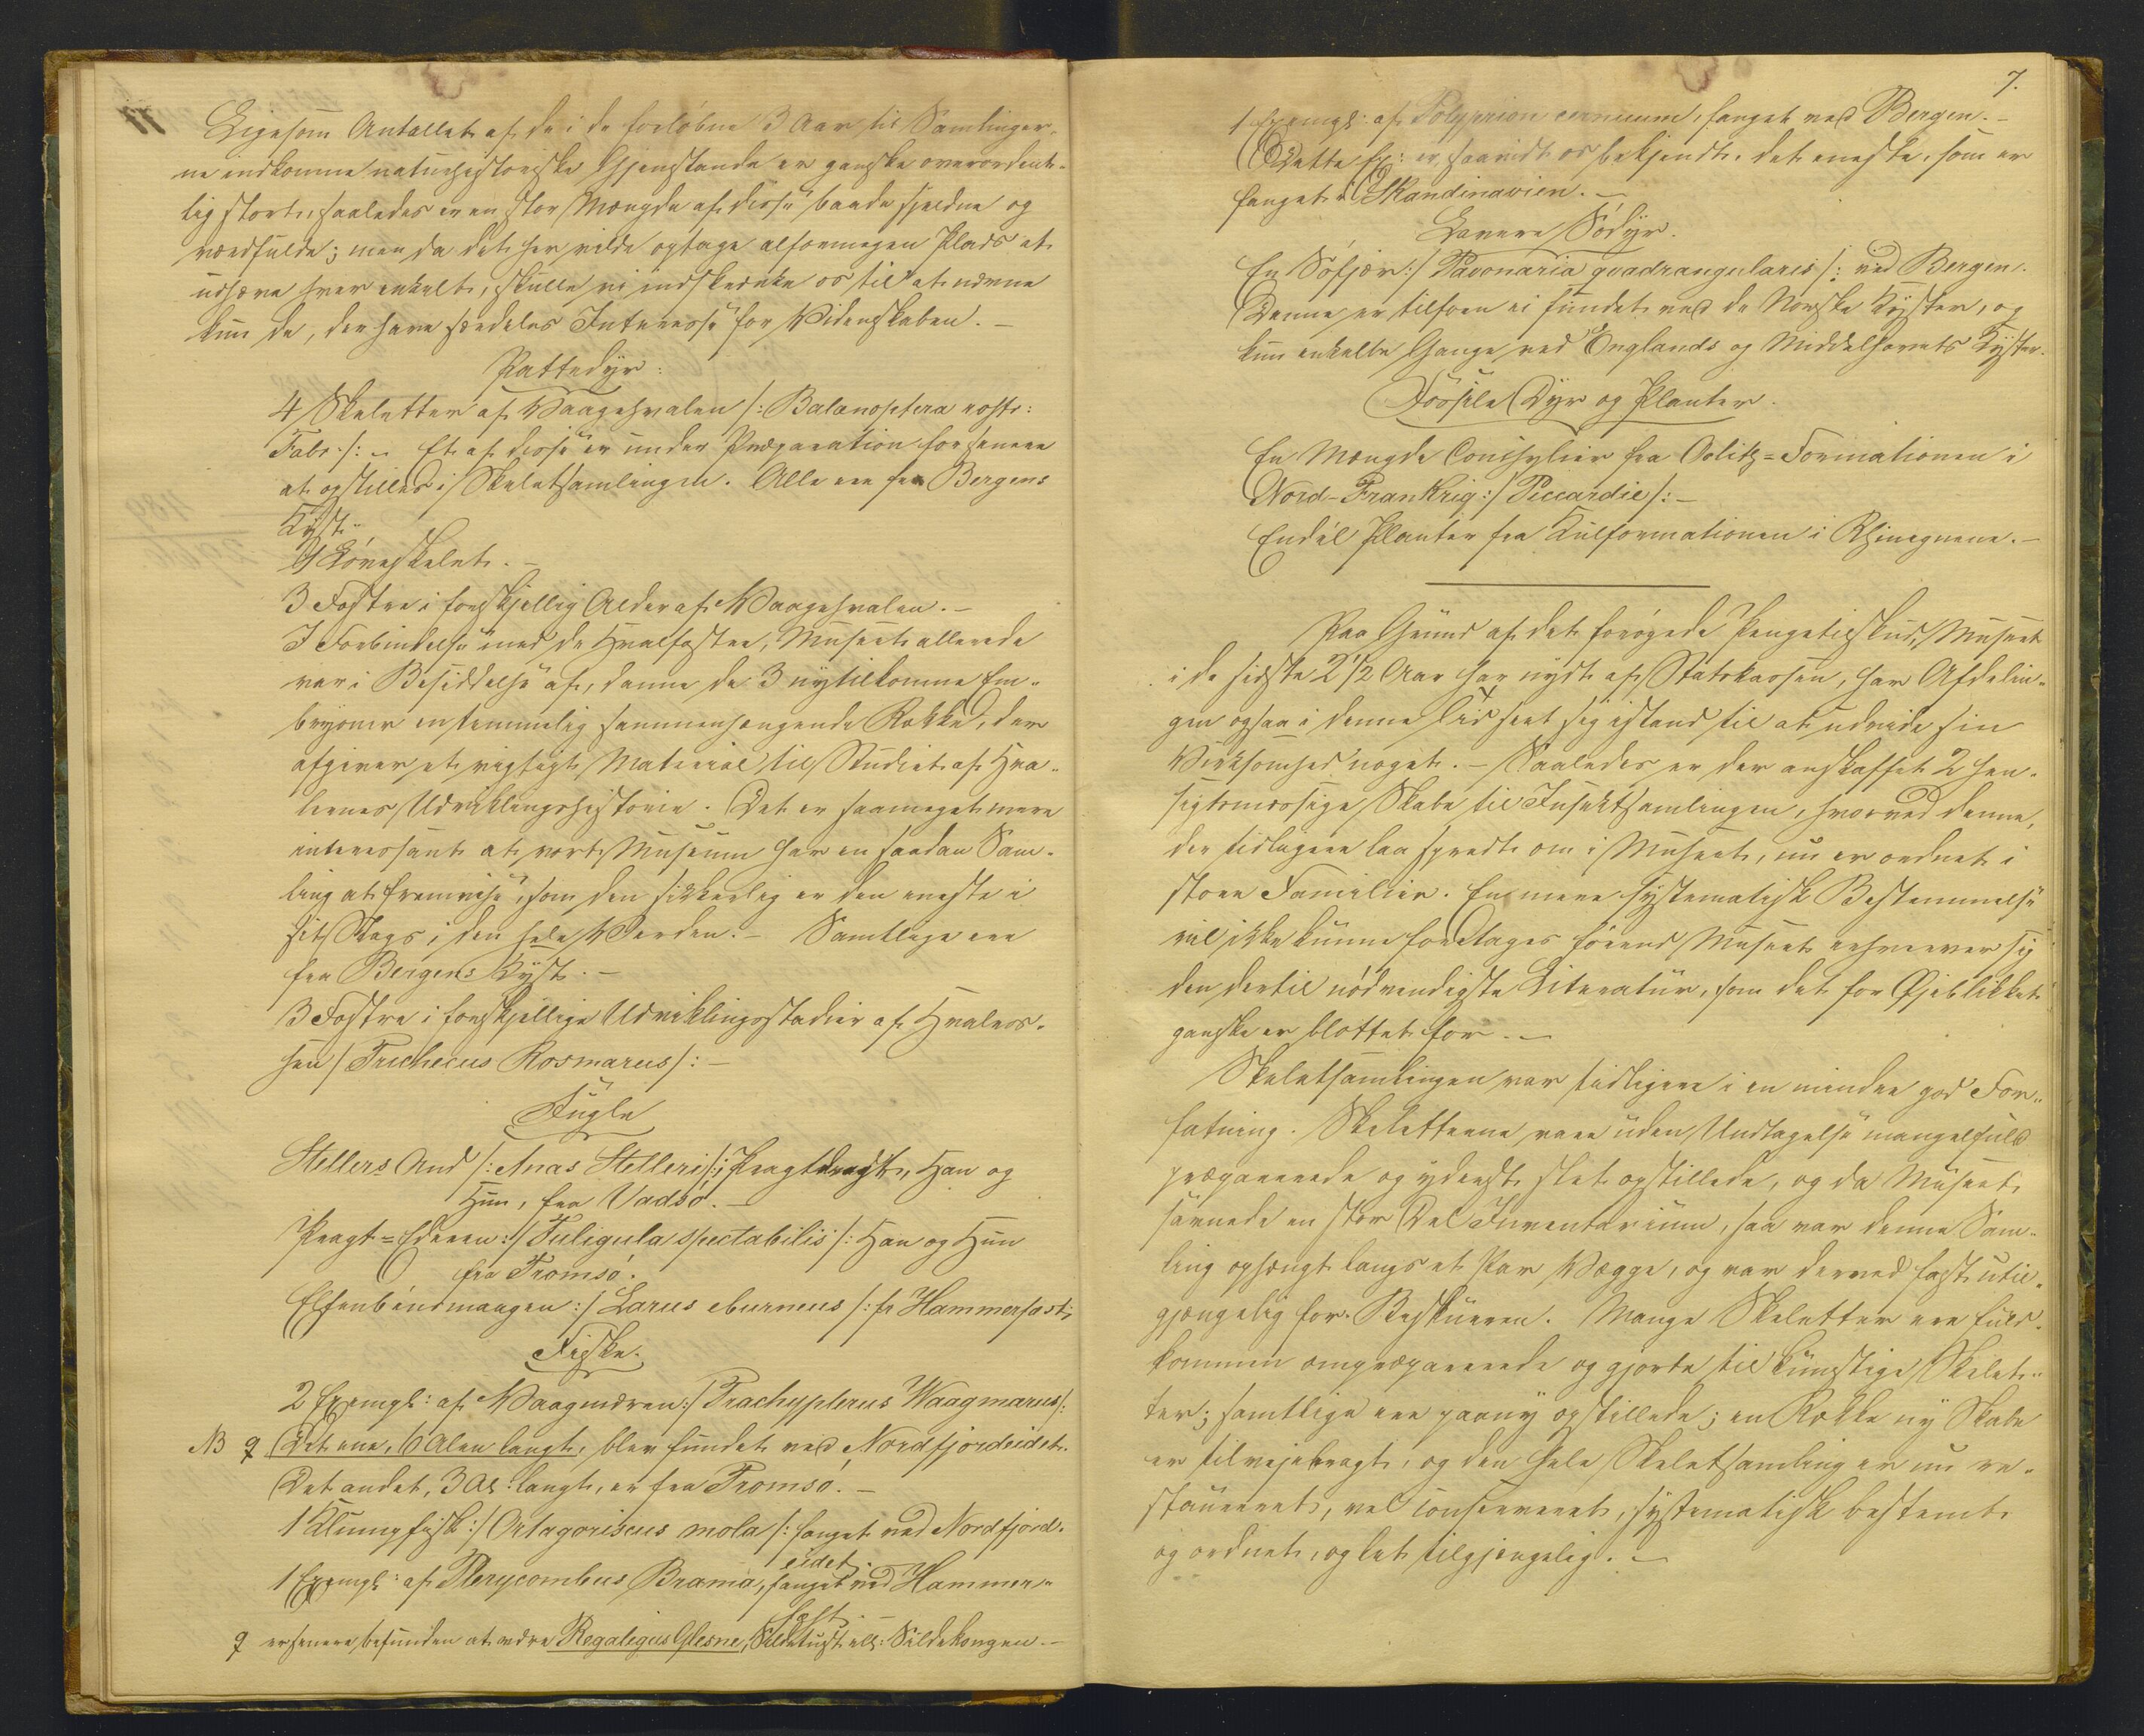 Ligesom Antallet af de i de forløbne 3 Aar til Samlinger-
ne indkomne naturhistoriske Gjenstande er ganske overordent-
lig stort, saaledes er en stor Mængde af disse baade sjeldne og
værdfulde; men da det her vilde optage alformegen Plads at
udhæve hver enkelt, skulle vi indskrænke os til at nævne
kun de, der have særdeles Interesse for Videnskaben. –
Pattedyr:
4 Skeletter af Vaagehvalen /: Balænoptera rostr:
Fabr /: – Et af disse er under Præparation for senere
at opstilles i Skeletsamlingen. Alle ere fra Bergens
Kyst.
1 Løveskelet. –
3 Fostre i forskjellig Alder af Vaagehvalen. –
I Forbindelse med de Hvalfostre, Museet allerede
var i Besiddelse af, danne de 3 nytilkomne Em-
bryoner en temmelig sammenhængende Række, der
afgiver et vigtigt Material til Studiet af Hva-
lernes Udviklingshistorie. Det er saameget mere
interessant at vort Museum har en saadan Sam-
ling at fremvise, som den sikkerlig er den eneste i
sit Slags i den hele Verden. – Samtlige ere
fra Bergens Kyst. –
3 Fostre i forskjellige Udviklingsstadier af Hvalros-
sen / Trichecus Rosmarus /: –
Fugle
Stellers And /: Anas Stelleri /: i Pragtdragt, Han og
Hun, fra Vadsø. –
Pragt-Ederen :/ Fuligula spectabilis /: Han og Hun
fra Tromsø.
Elfenbensmaagen :/ Larus eburneus /: fr Hammerfest;
Fiske.
2 Exempl: af Vaagmæren :/ Trachypterus Waagmarus /:
NB Det ene, 6 Alen langt, blev fundet ved Nordfjordeidet.
Det andet, 3 Al: langt, er fra Tromsø. –
1 Klumpfisk :/ Ortagoriscus mola /: fanget ved Nordfjord-
eidet.
1 Exempl: af Pterycombus Brama, fanget ved Hammer-
fest.
er senere befunden at være Regalegus Glesne, Sildetust ell: Sildekongen. –
7.
1 Exempl: af Polyprion cernuum, fanget ved Bergen. –
Dette Ex: er, saavidt os bekjendt, det eneste, som er
fanget i Skandinavien. –
Lavere Sødyr.
En Søfjær :/ Pavonaria quadrangularis /: ved Bergen.
Denne er tilforn ei fundet ved de Norske Kyster, og
kun enkelte Gange ved Englands og Middelhavets Kyster.
Fossile Dyr og Planter.
En Mængde Conchylier fra Oolith-Formationen i
Nord-Frankrig :/ Piccardie /: –
Endel Planter fra Kulformationen i Rhinegnene. –
Paa Grund af det forøgede Pengetilskud, Museet
i de sidste 2 1/2 Aar har nydt af Statskassen, har Afdelin-
gen ogsaa i denne Tid seet sig istand til at udvide sin
Virksomhed noget. – Saaledes er der anskaffet 2 hen-
sigtsmæssige Skabe til Insektsamlingen, hvorved denne,
der tidligere laa spredt om i Museet, nu er ordnet i
store Familier. En mere systematisk Bestemmelse
vil ikke kunne foretages førend Museet erhverver sig
den dertil nødvendigste Literatur, som det for Øjeblikket
ganske er blottet for. –
Skeletsamlingen var tidligere i en mindre god For-
fatning. Skeletterne vare uden Undtagelse mangelfuld
præparerede og yderst slet opstillede, og da Museet
savnede en stor Del Inventarium, saa var denne Sam-
ling ophængt langs et Par Vægge, og var derved fast util-
gjængelig for Beskueren. Mange Skeletter ere fuld-
kommen ompræparerede og gjorte til kunstige Skelet-
ter; samtlige ere paany opstillede; en Række ny Skabe
er tilvejebragt, og den hele Skeletsamling er nu re-
staureret, vel conserveret, systematisk bestemt
og ordnet, og let tilgjængelig. –